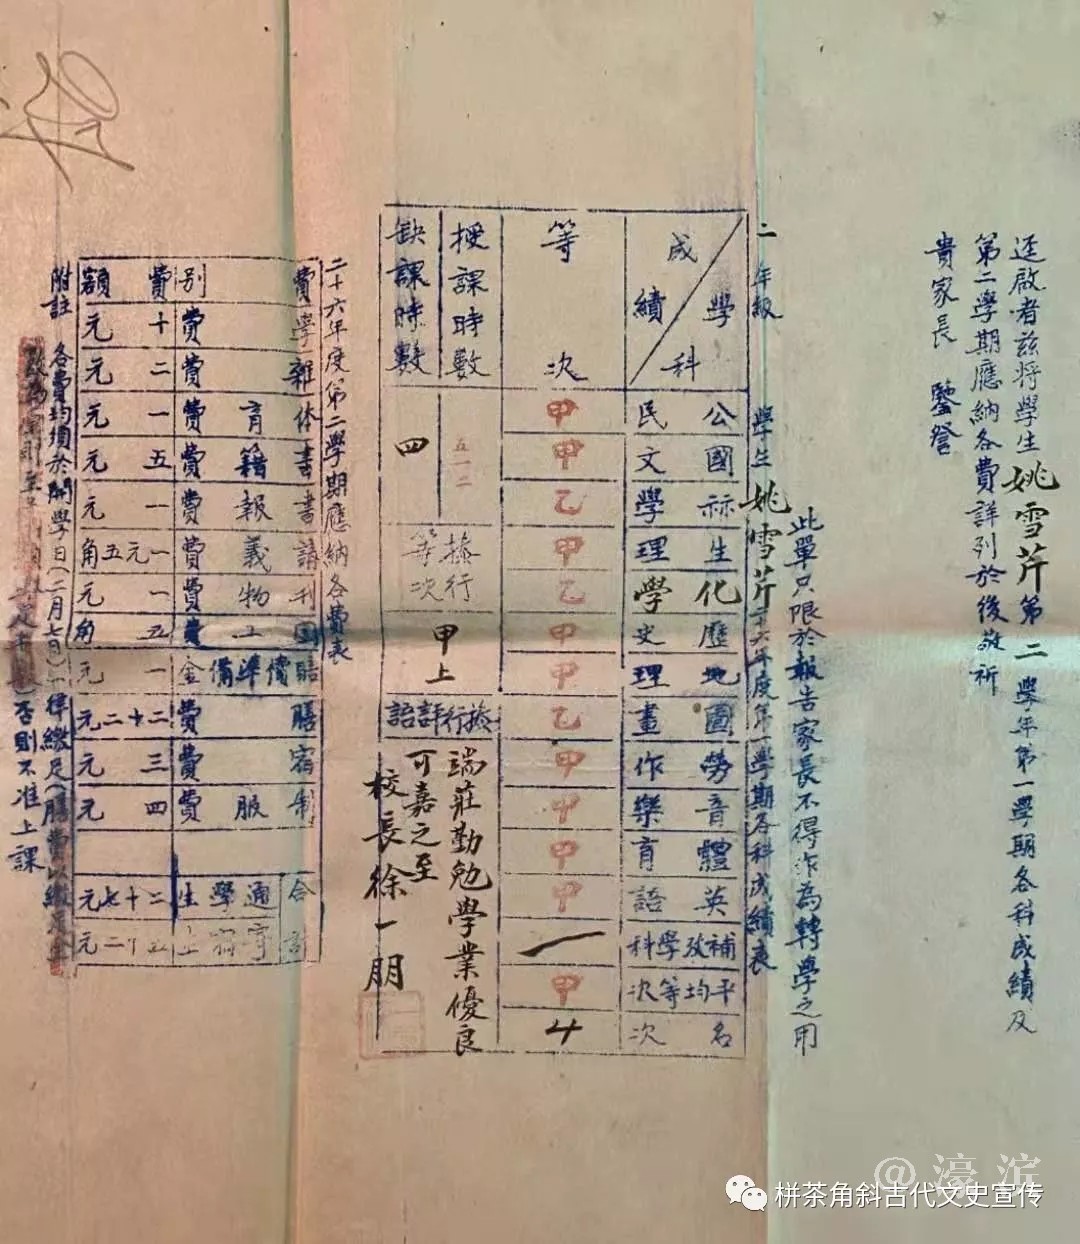 逕啟者茲將學生姚雪芹第二學年第一學期各科成績及
第二學期應納各費詳列於後敬祈
貴家長 鑒詧
此單只限於報告家長不得作為轉學之用
二年級 學生姚雪芹二十六年度第一學期各科成績表
學科 成績 等次
公民 甲
國文 甲
算學 乙
生理 甲
化學 乙
歷史 甲
地理 甲
圖畫 乙
勞作 甲
音樂 甲
體育 甲
英語 甲
補考學科
平均等次 甲
名次 4
授課時數 五一二
缺課時數 四
操行等次 甲上
操行評語
端莊勤勉學業優良
可嘉之至
校長徐一朋
二十六年度第二學期應納各費表
費別 費額
學費 十元
雜費 二元
体育費 一元
書籍費 五元
書報費 一元
講義費 一元五角
刊物費 一元
圖工費 五角
賠償準備金 一元
膳費 二十二元
宿費 三元
制服費 四元
合計
通學生 二十七元
寄宿生 五十二元
附註 各費均須於開學日(二月七日)一律繳足
否則不准上課
@濠滨
栟茶角斜古代文史宣传